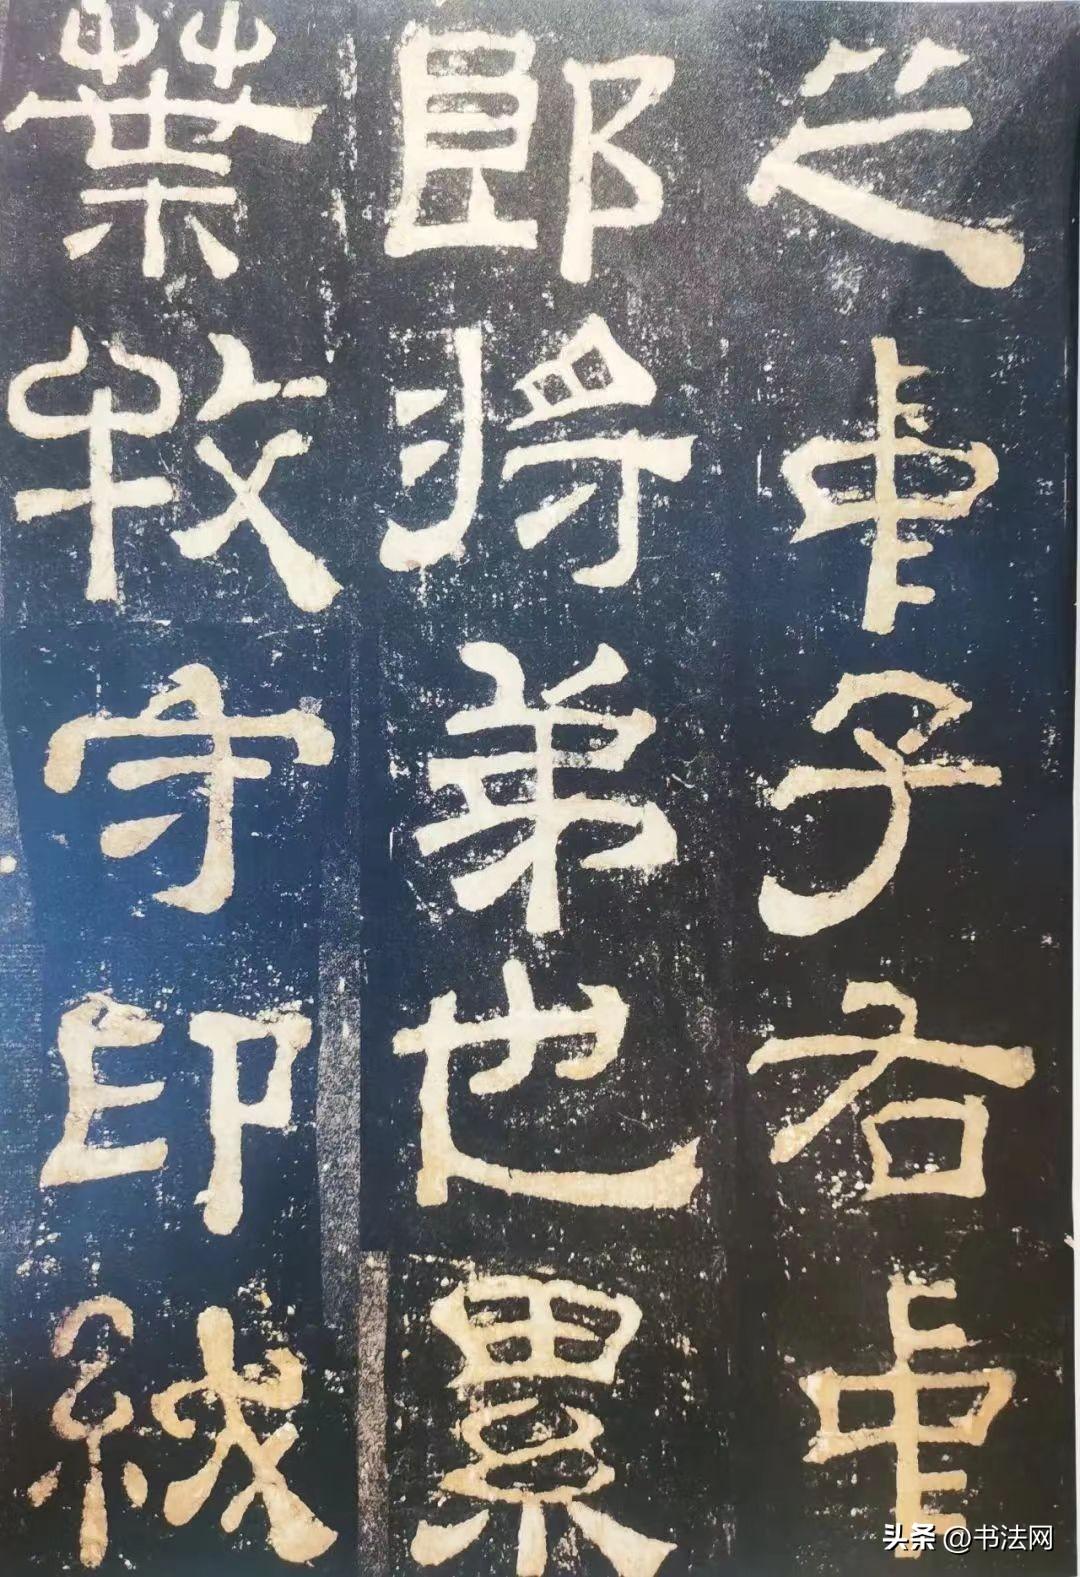 之中子右中
郎將弟也累
葉牧守印紱
头条 @书法网